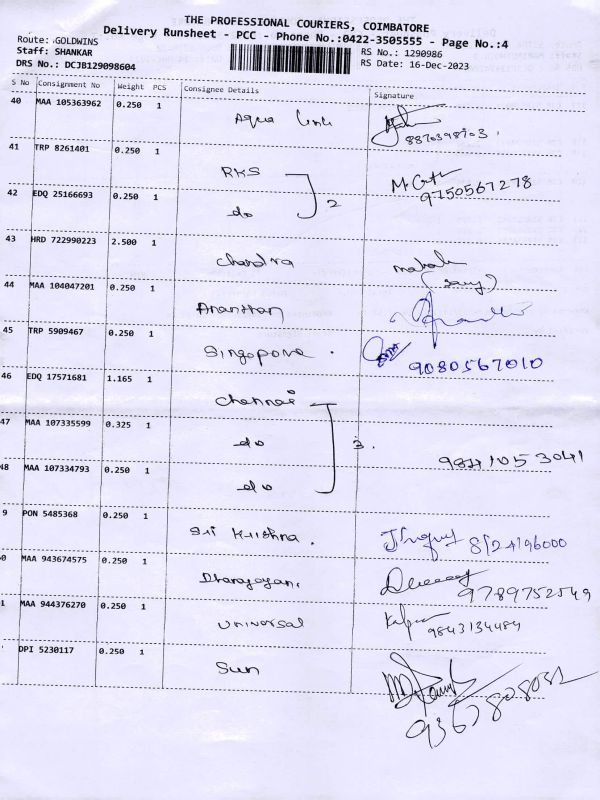 THE PROFESSIONAL COURIERS, COIMBATORE
Delivery Runsheet - PCC - Phone No.:0422-3505555 - Page No.:4
Route: GOLDWINS
Staff: SHANKAR
DRS No.: DCJB129098604
RS No.: 1290986
RS Date: 16-Dec-2023
S No Consignment No Weight PCS Consignee Details Signature
40 MAA 105363962 0.250 1 Aqua Link 8870398703
41 TRP 8261401 0.250 1 RKS 9750567278
42 EDQ 25166693 0.250 1 do 2
43 HRD 722990223 2.500 1 Chandra
44 MAA 104047201 0.250 1 Ananthan
45 TRP 5909467 0.250 1 Singapore . 9080567010
46 EDQ 17571681 1.165 1 Chennai
47 MAA 107335599 0.325 1 do 3. 9841053041
48 MAA 107334793 0.250 1 do
9 PON 5485368 0.250 1 Sri Krishna . 8124196000
0 MAA 943674575 0.250 1 9789752549
1 MAA 944376270 0.250 1 Universal 9843134484
DPI 5230117 0.250 1 Sun 9367808082